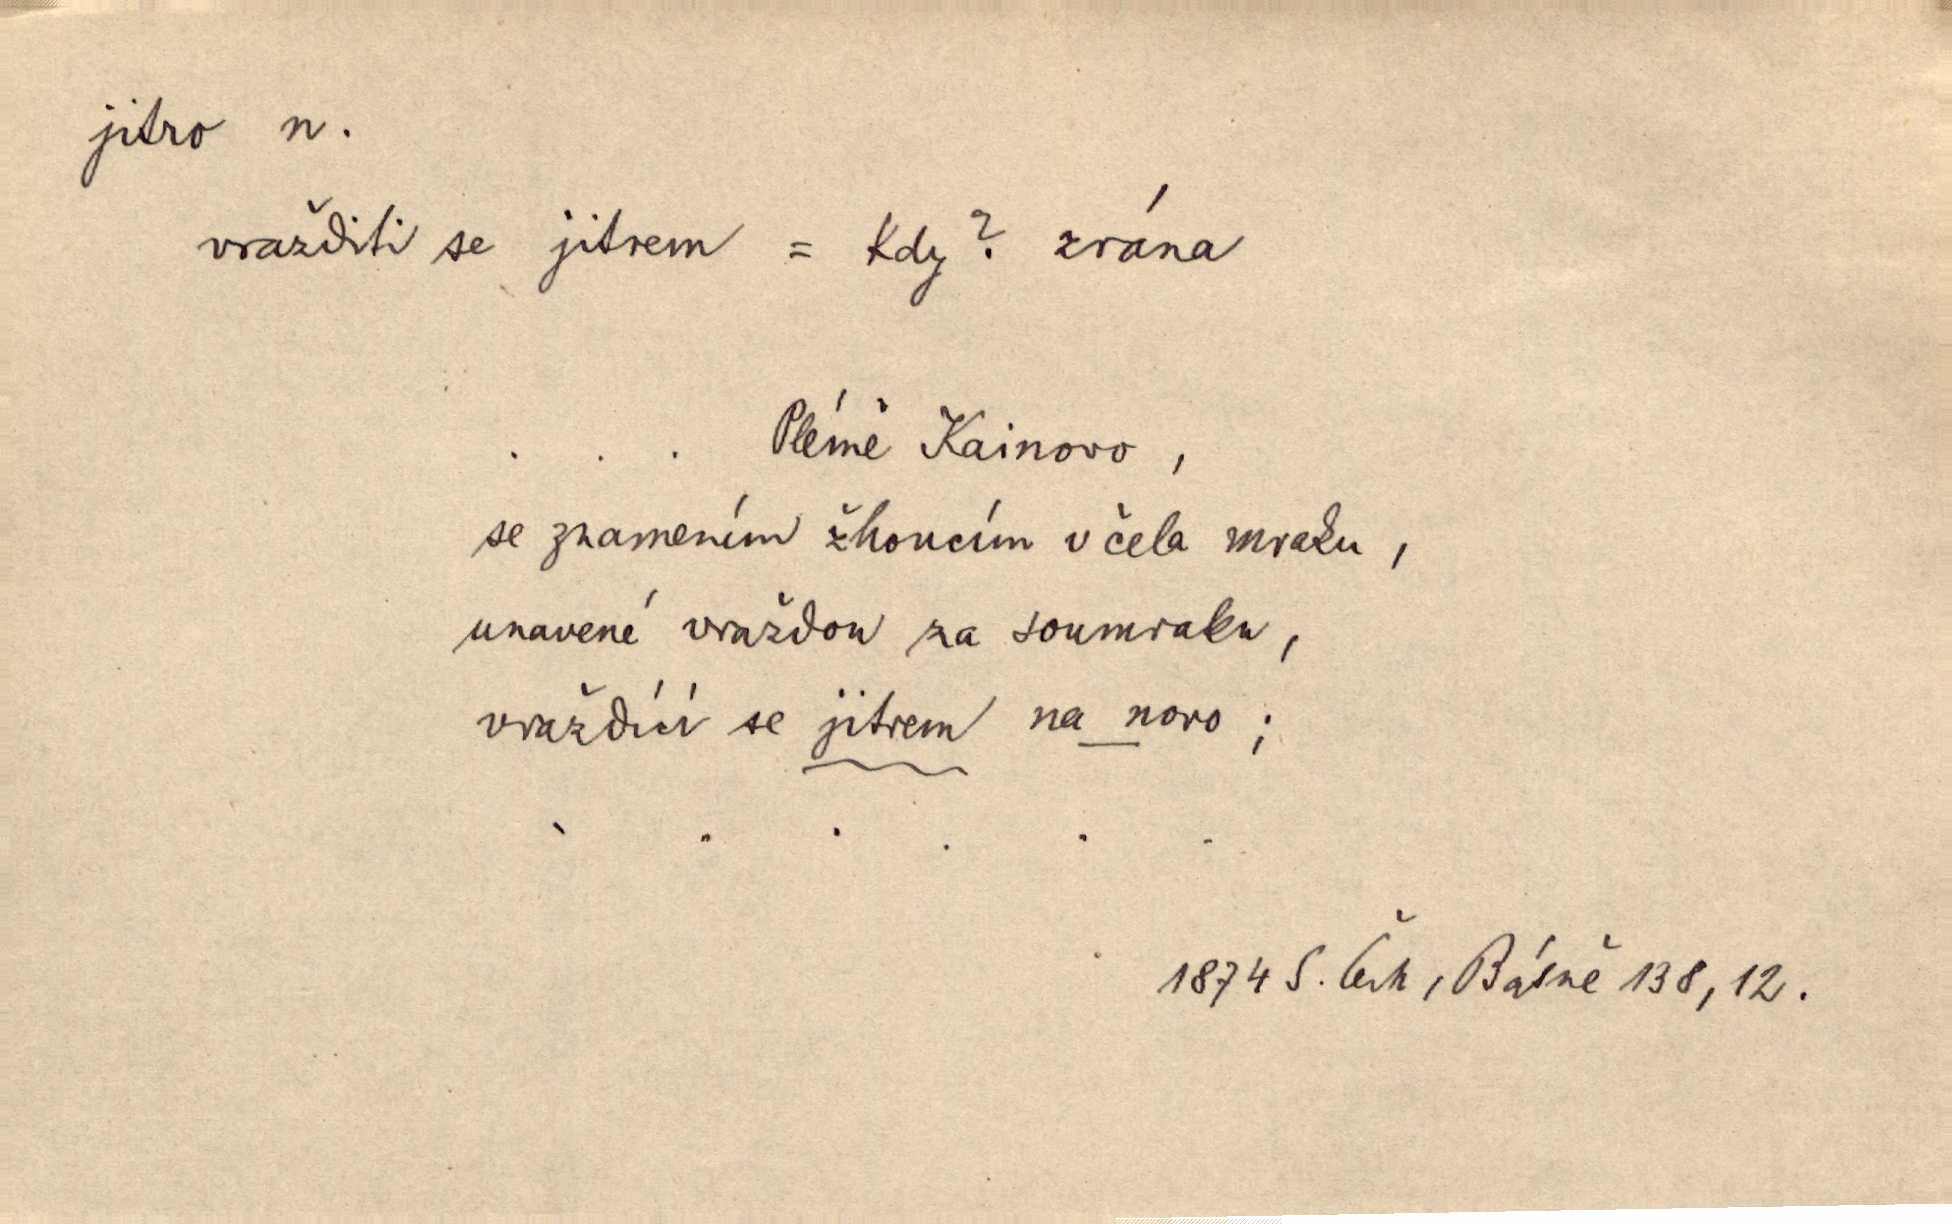 jitro n.
vražditi se jitrem = kdy? zrána
. . . Plémě Kainovo,
se znamením žhoucím v čela mraku,
unavené vraždou za soumraku,
vraždící se jitrem na novo;
. . . . . .
1874 S. Čech, Básně 138, 12.